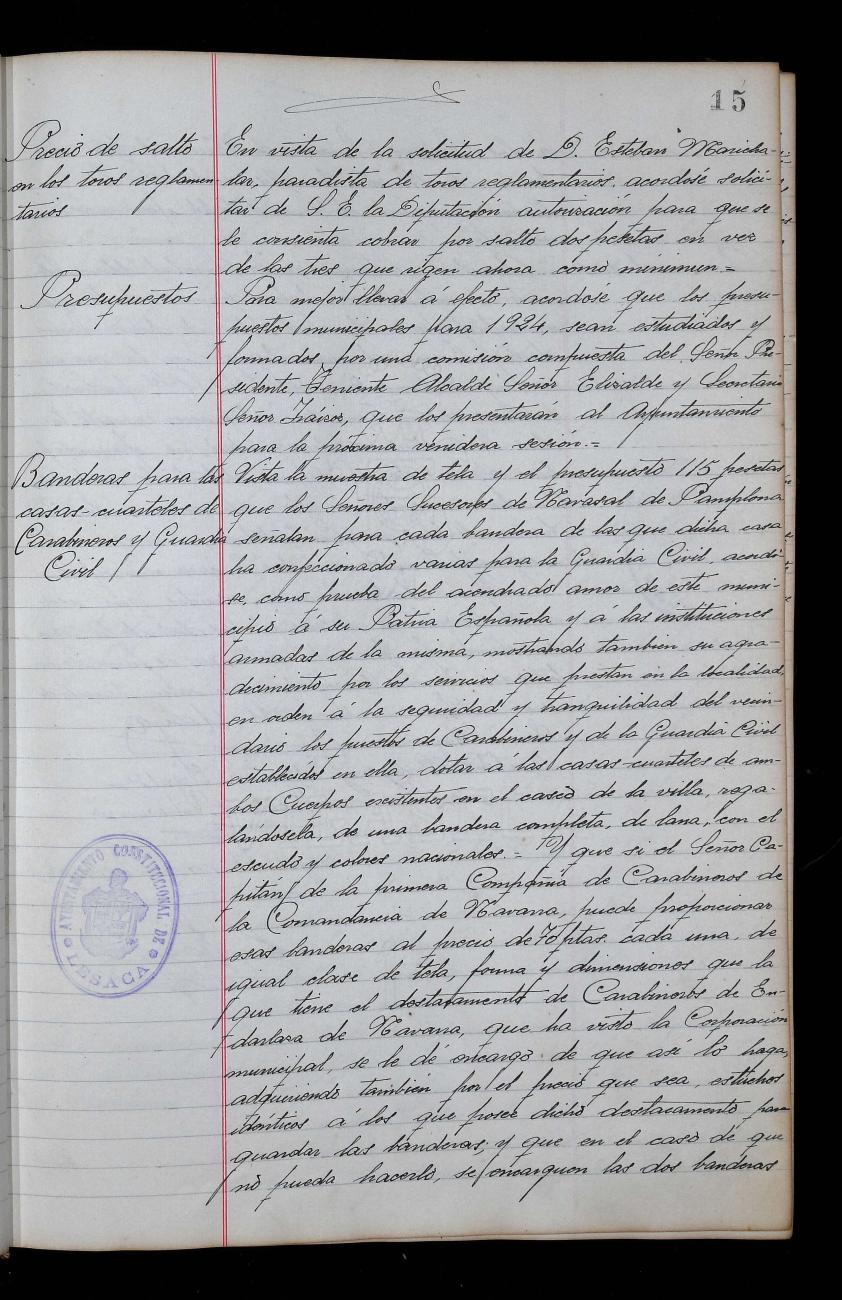 15
Precio de salto
en los toros reglamen-
tarios
En vista de la solicitud de D. Esteban Maricha-
lar, paradista de toros reglamentarios, acordóse solici-
tar de S. E. la Diputación autorización para que se
le consienta cobrar por salto dos pesetas en vez
de las tres que rigen ahora como minimun=
Presupuestos
Para mejor llevar á efecto, acordóse que los presu-
puestos municipales para 1924, sean estudiados y
formados por una comisión compuesta del Señor Pre-
sidente, Teniente Alcalde Señor Elizalde y Secretario
Señor, que los presentarán al Ayuntamiento
para la próxima venidera sesión.=
Banderas para las
casas-cuarteles de
Carabineros y Guardia
Civil
Vista la muestra de tela y el presupuesto 115 pesetas
que los Señores Sucesores de Navasal de Pamplona
señalan para cada bandera de las que dicha casa
ha confeccionado varias para la Guardia Civil, acordó
se, como prueba del acendrado amor de este muni-
cipio á su Patria Española y á las instituciones
armadas de la misma, mostrando tambien su agra-
decimiento por los servicios que prestan en la localidad,
en orden á la seguridad y tranquilidad del vecin-
dario los puestos de Carabineros y de la Guardia Civil
establecidos en ella, dotar á las casas-cuarteles de am-
bos Cuerpos existentes en el casco de la villa, rega-
lándosela, de una bandera completa, de lana, con el
escudo y colores nacionales.= Y que si el Señor Ca-
pitán de la primera Compañia de Carabineros de
la Comandancia de Navarra, puede proporcionar
esas banderas al precio de 70 ptas. cada una, de
igual clase de tela, forma y dimensiones que la
que tiene el destacamento de Carabineros de En-
darlaza de Navarra, que ha visto la Corporación
municipal, se le dé encargo de que así lo haga,
adquiriendo también por el precio que sea, estuches
idénticos á los que posee dicho destacamento para
guardar las banderas; y que en el caso de que
no pueda hacerlo, se encarguen las dos banderas
AYUNTAMIENTO CONSTITUCIONAL DE
LESACA